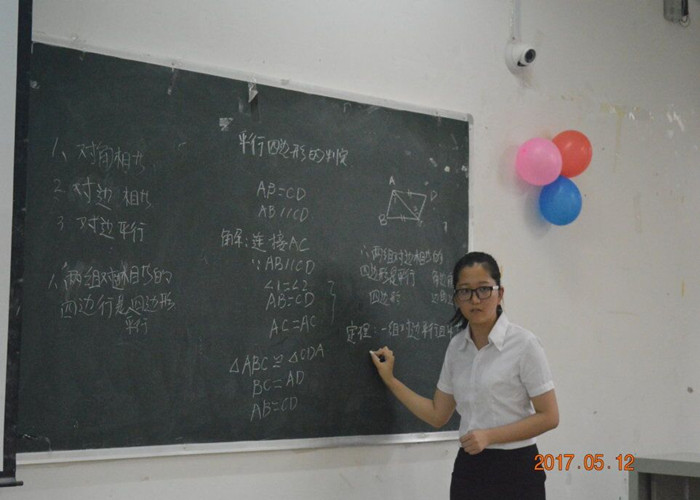 平行四边形的判定
1、对角相等
2、对边相等
3、对边平行
1、两组对边相等的
四边行是四边形
平行
AB=CD
AB∥CD
解:连接AC
∵AB∥CD
∠1=∠2
AB=CD
AC=AC
△ABC≌△CDA
BC=AD
AB=CD
A D
B C
两组对边相等的
四边形是平行
四边形
定理:一组对边平行且
2017.05.12